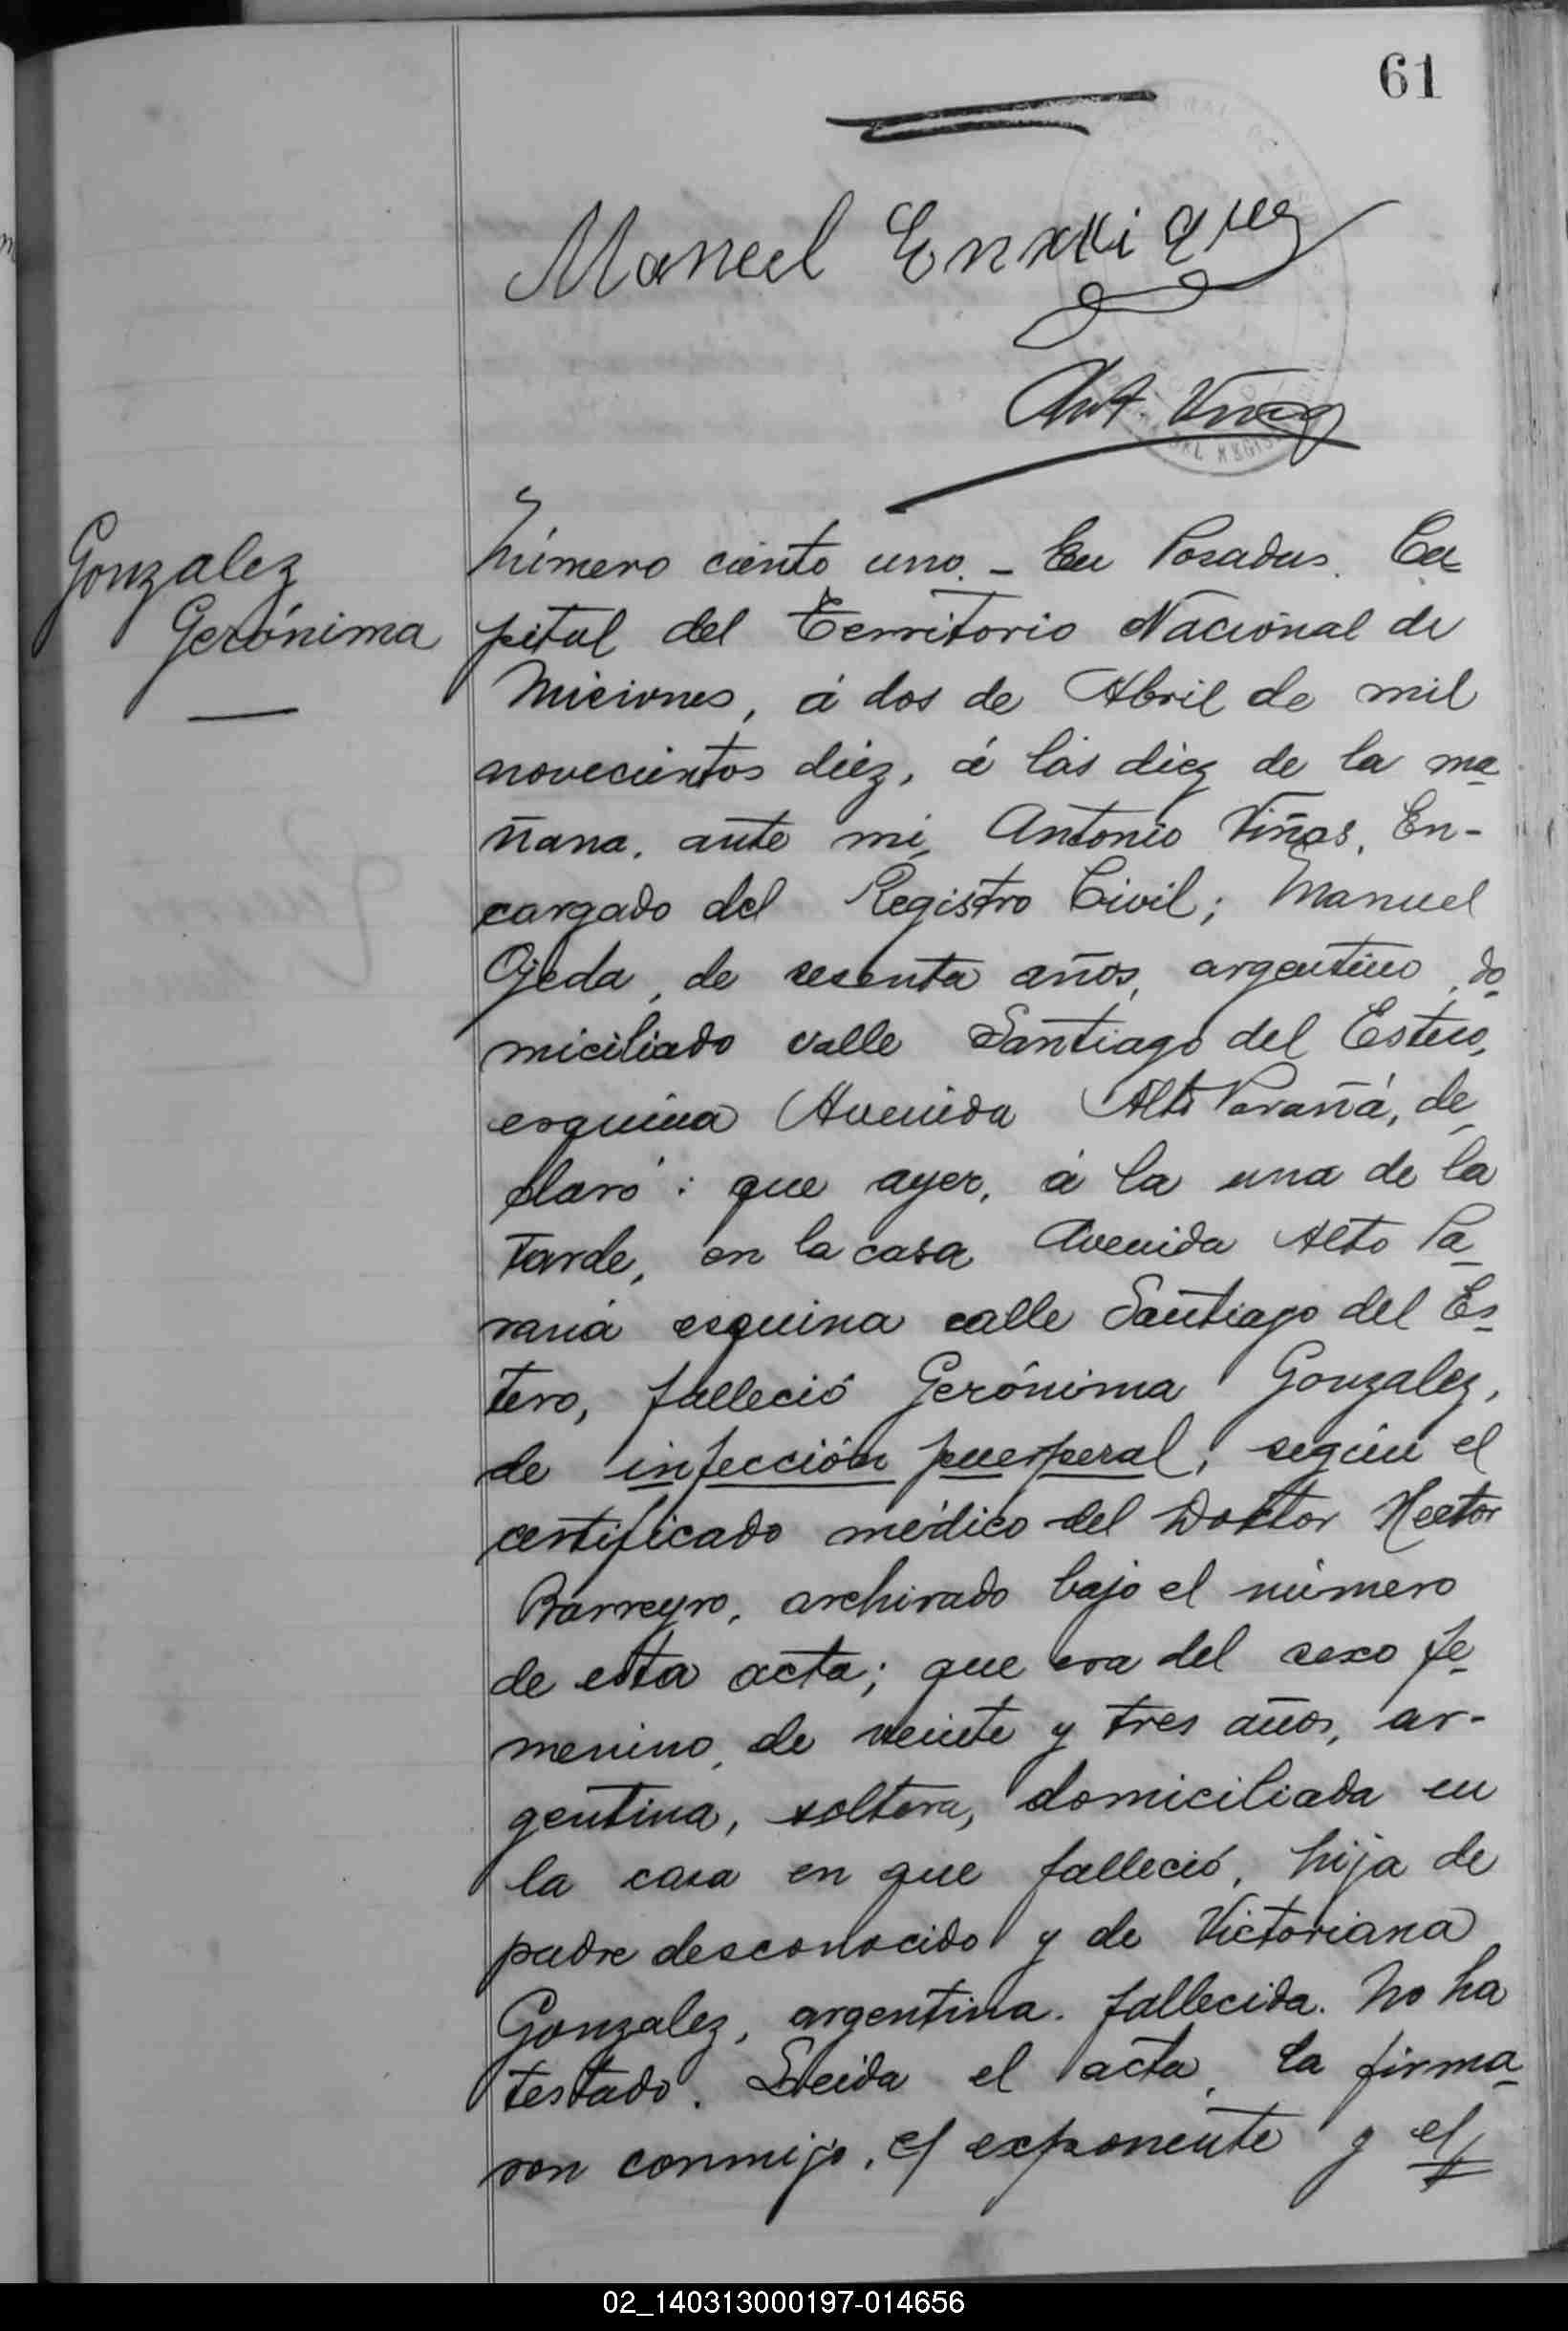 61
Manuel Enrriquez
Ant. Viñas
Gonzalez
Gerónima
Número ciento uno. - En Posadas. Ca=
pital del Territorio Nacional de
Misiones, á dos de Abril de mil
novecientos diéz, á las diez de la ma=
ñana, ante mi, Antonio Viñas, En-
cargado del Registro Civil; Manuel
Ojeda, de sesenta años, argentino, do=
miciliado calle Santiago del Estero,
esquina Avenida Alto Paraná, de=
claró: que ayer, á la una de la
tarde, en la casa Avenida Alto Pa=
raná esquina calle Santiago del Es=
tero, falleció Gerónima Gonzalez,
de infección puerperal, según el
certificado médico del Doktor Hector
Barreyro, archivado bajo el número
de esta acta; que era del sexo fe=
menino, de veinte y tres años, ar-
gentina, soltera, domiciliada en
la casa en que falleció, hija de
padre desconocido y de Victoriana
Gonzalez, argentina. fallecida. No ha
testado. Leida el acta, la firma=
ron conmigo, el exponente y el
02_140313000197-014656